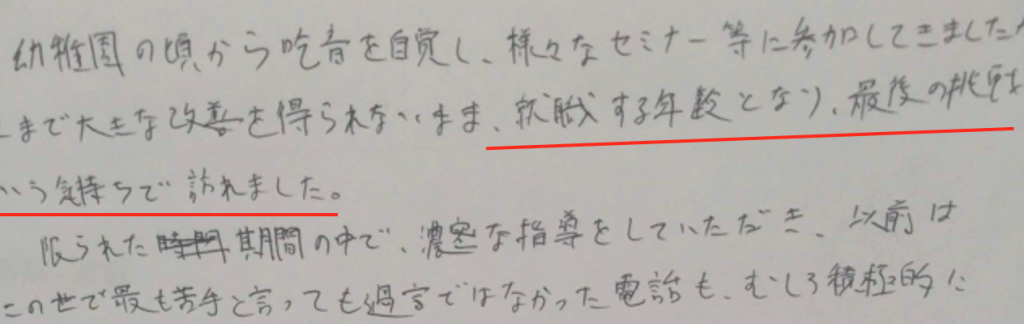 幼稚園の頃から吃音を自覚し、様々なセミナー等に参加してきました
まで大きな改善を得られないまま、就職する年齢となり、最後の挑戦
いう気持ちで訪れました。
限られた時間期間の中で、濃密な指導をしていただき、以前は
この世で最も苦手と言っても過言ではなかった電話も、むしろ積極的に